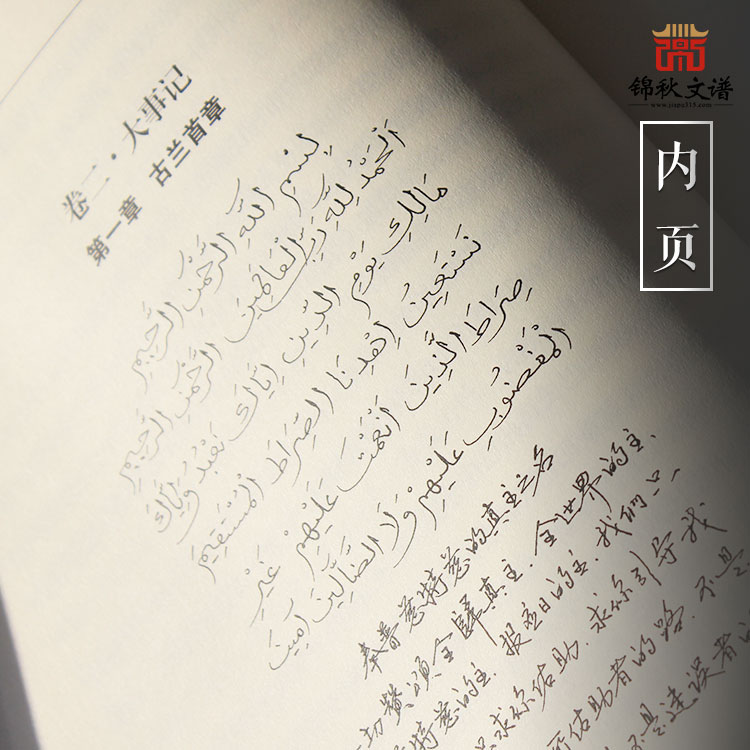 锦秋文谱
www.jinpu315.com
内页
卷三·大事记
第一章 古兰首章
بِسْمِ اللَّهِ الرَّحْمَٰنِ الرَّحِيمِ
اَلْحَمْدُ لِلَّهِ رَبِّ الْعَالَمِينَ الرَّحْمَٰنِ الرَّحِيمِ
مَالِكِ يَوْمِ الدِّينِ اِيَّاكَ نَعْبُدُ وَاِيَّاكَ
نَسْتَعِينُ اِهْدِنَا الصِّرَاطَ الْمُسْتَقِيمَ
صِرَاطَ الَّذِينَ اَنْعَمْتَ عَلَيْهِمْ غَيْرِ
الْمَغْضُوبِ عَلَيْهِمْ وَلَا الضَّالِّينَ آمِينَ
奉普慈特慈的真主之名
一切赞颂全归真主、全世界的主、
特慈的主、报应日的主、我们只
求你佑助、求你引导我
佑助者的路、不是
不是迷误者的